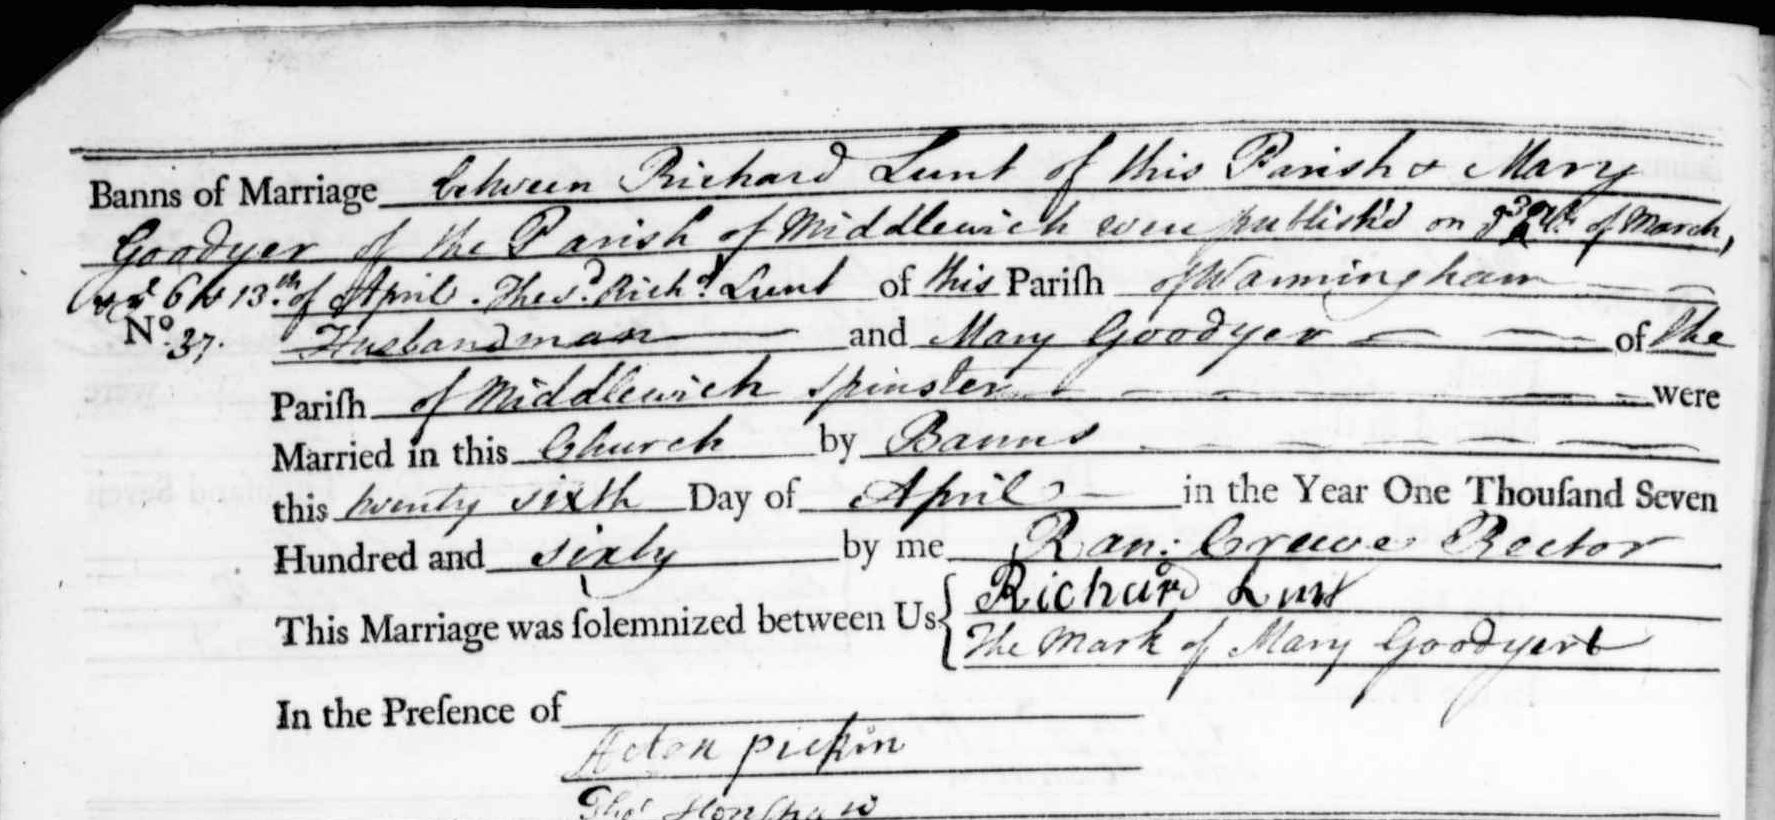 Banns of Marriage between Richard Lunt of this Parish & Mary
Goodyer of the Parish of Middlewich were publish'd on 30th of March,
and 6th 13th of April. The sd. Richd. Lunt of this Pariſh of Warmingham
No. 37. Husbandman and Mary Goodyer of the
Pariſh of Middlewich Spinster were
Married in this Church by Banns
this twenty sixth Day of April in the Year One Thouſand Seven
Hundred and sixty by me Ran: Crewe Rector
This Marriage was ſolemnized between Us Richard Lunt
The Mark of Mary Goodyer
In the Preſence of
pickin
Thos